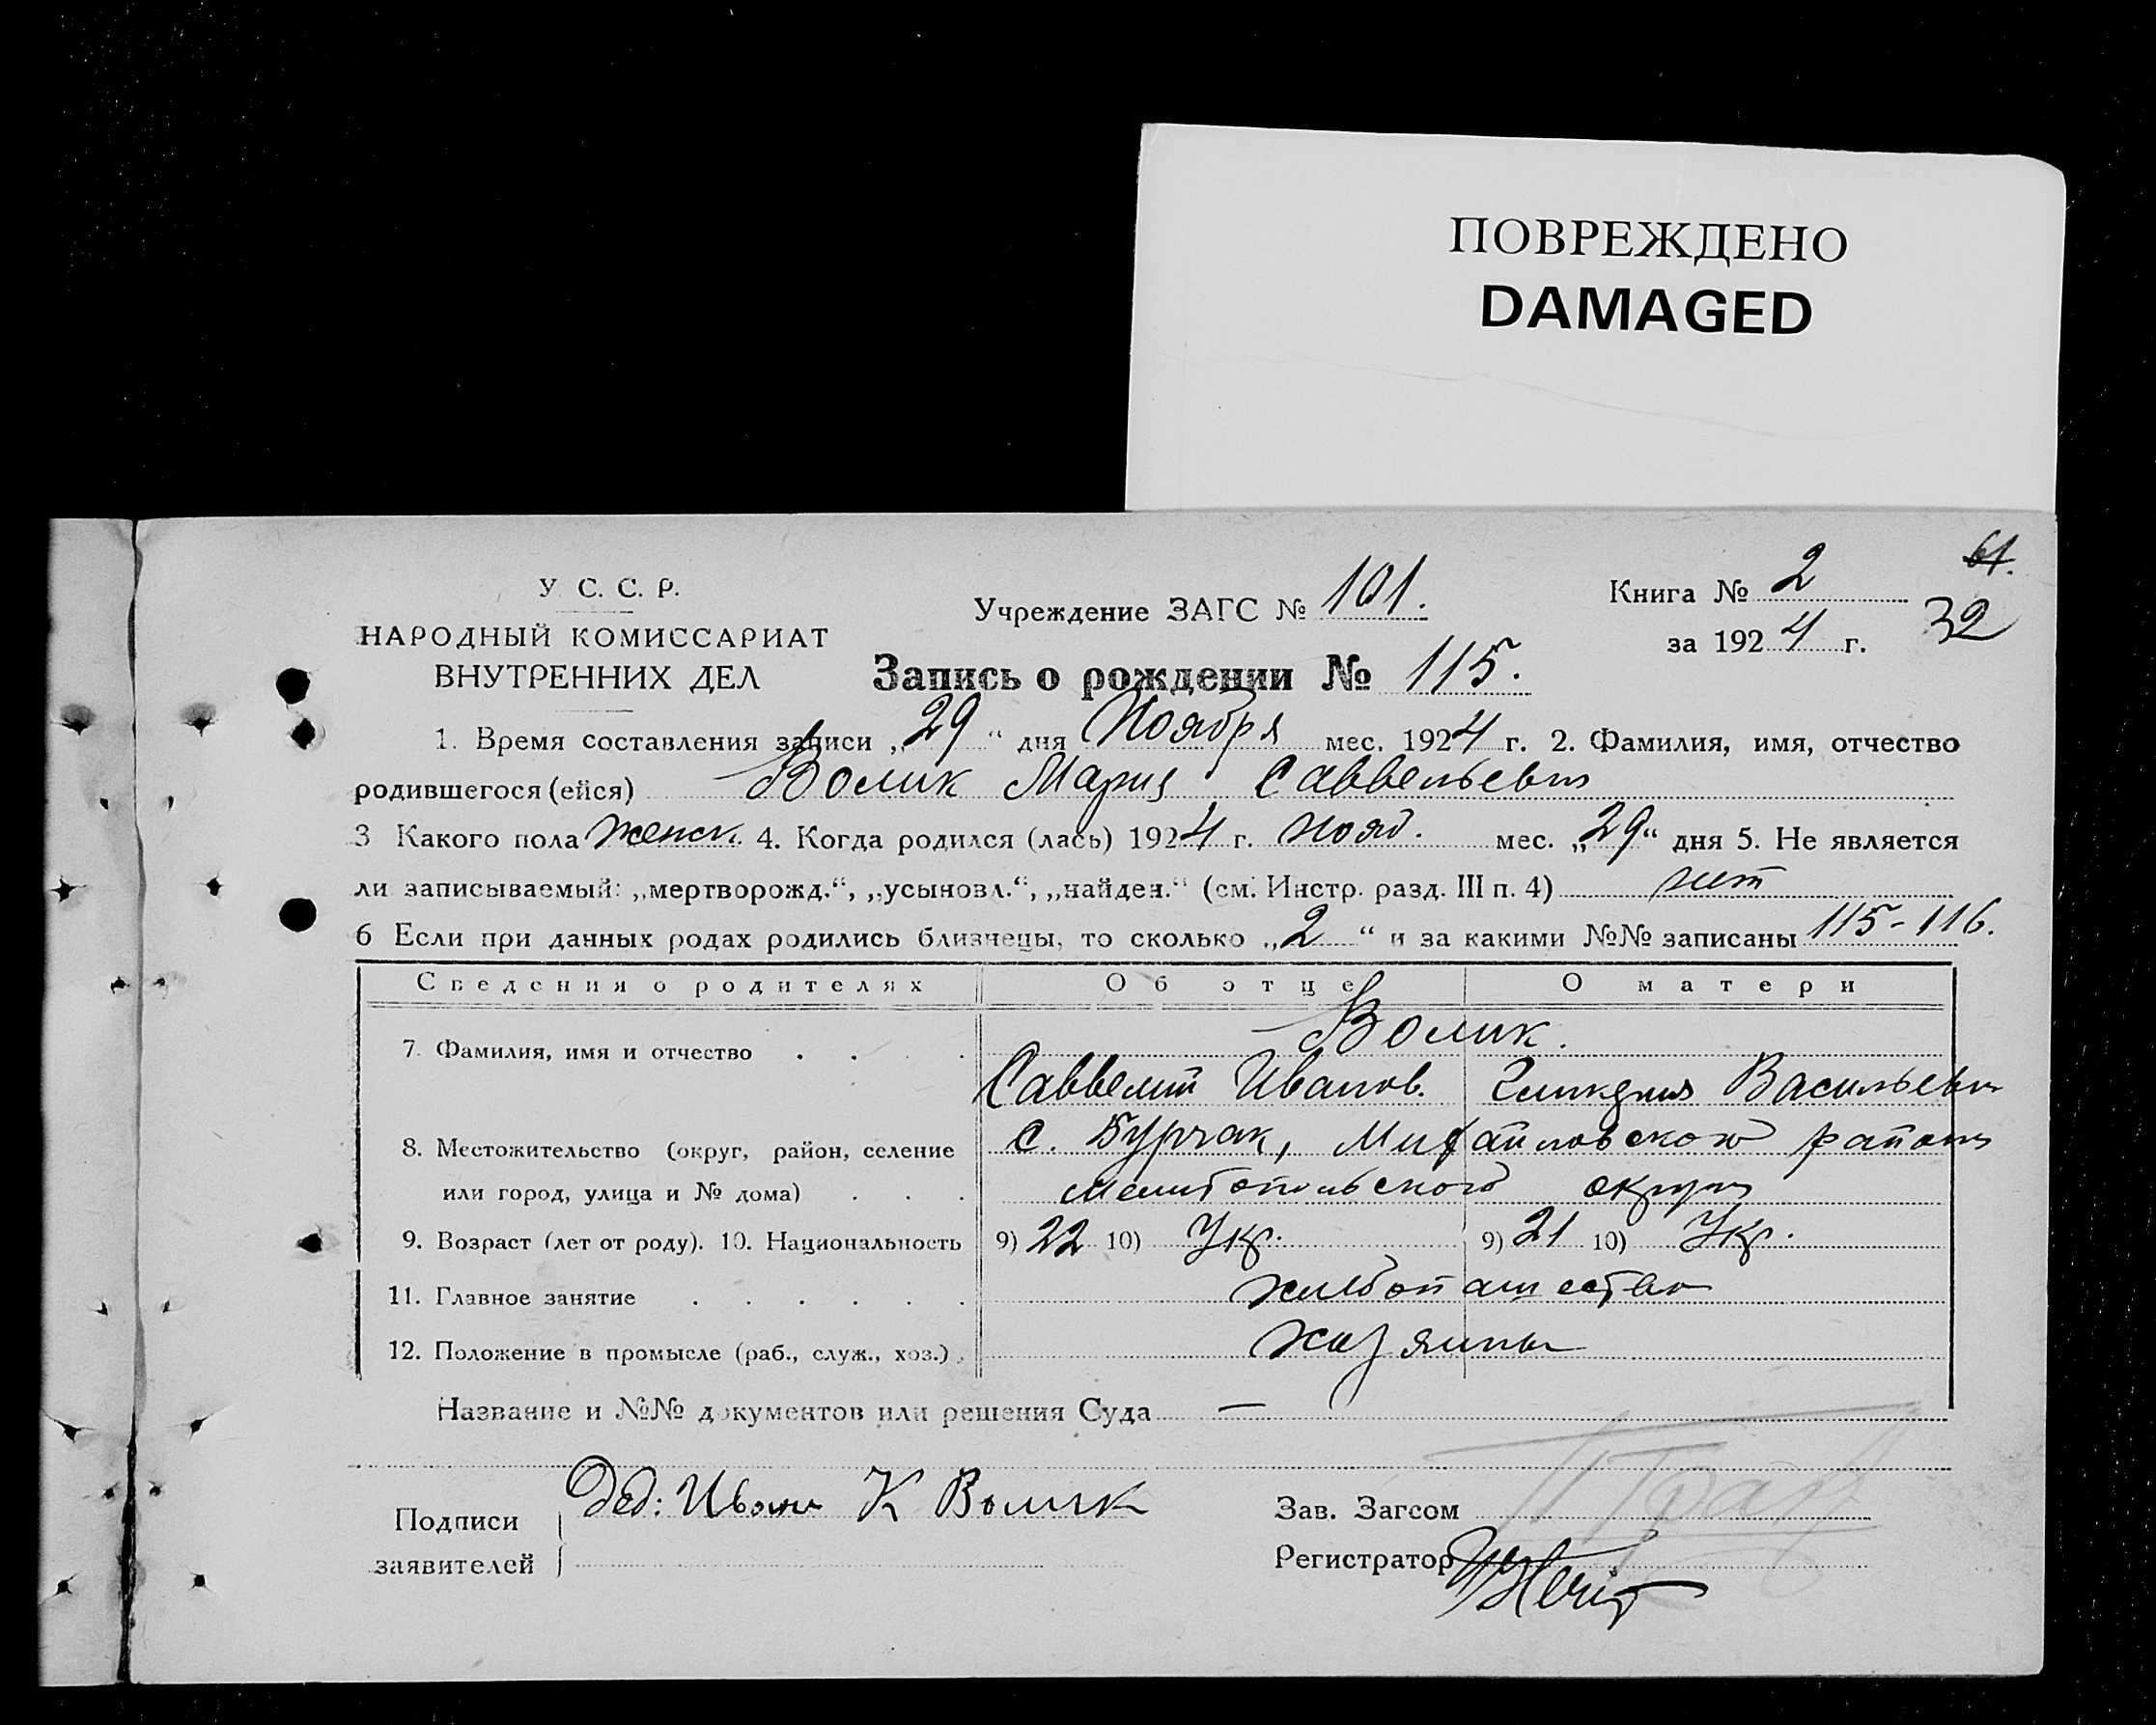 ПОВРЕЖДЕНО
DAMAGED
61.
У С. С. Р.
НАРОДНЫЙ КОМИССАРИАТ
ВНУТРЕННИХ ДЕЛ
Учреждение ЗАГС № 101.
Книга № 2
за 1924 г.
32
Запись о рождении № 115.
1. Время составления записи „29“ дня Ноября мес. 1924 г. 2. Фамилия, имя, отчество
родившегося (ейся) Волик Мария Саввельевн
3 Какого пола женск. 4. Когда родился (лась) 1924 г. нояб. мес. „29“ дня 5. Не является
ли записываемый: „мертворожд.“, „усыновл.“, „найден.“ (см. Инстр. разд. III п. 4) нет
6 Если при данных родах родились близнецы, то сколько „2“ и за какими №№ записаны 115-116.
Сведения о родителях Об отце О матери
Волик.
7. Фамилия, имя и отчество . . . .
Саввелий Иванов. Васильевн
8. Местожительство (округ, район, селение с. Бурчак, Михайловского района
или город, улица и № дома) . . . Мелитопольского округа
9. Возраст (лет от роду). 10. Национальность 9) 22 10) Укр. 9) 21 10) Укр.
11. Главное занятие . . . . . . хлебопашество
12. Положение в промысле (раб., служ., хоз.) . хозяины
Название и №№ документов или решения Суда —
Подписи заявителей Дед: Иван К Волик
Зав. Загсом
Регистратор